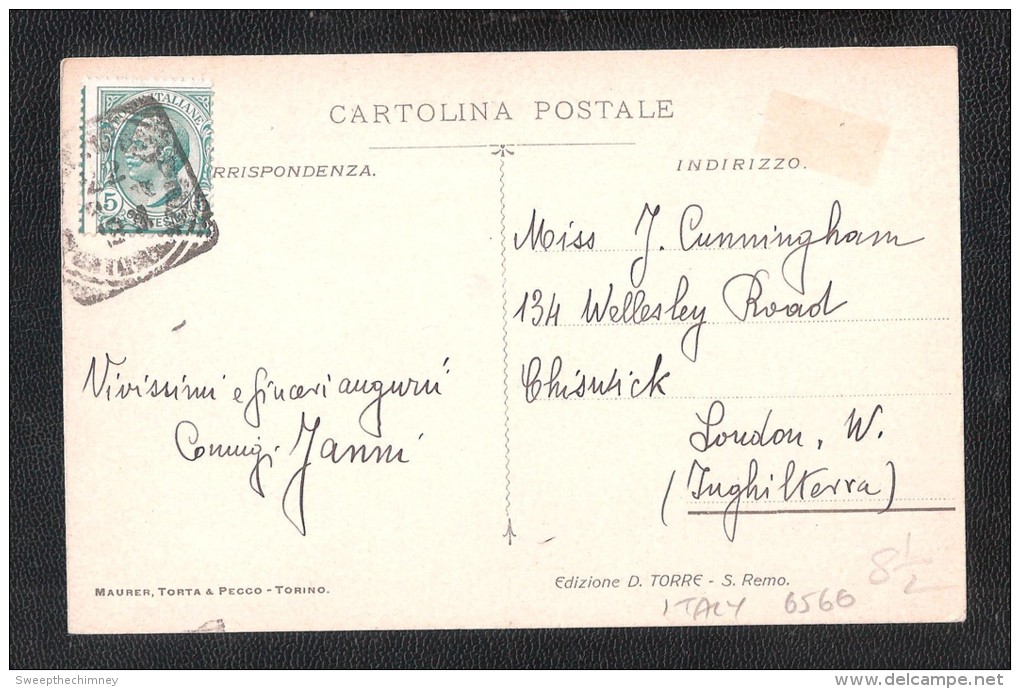 CARTOLINA POSTALE
RRISPONDENZA.
INDIRIZZO.
ITALIANE
5
Vivissimi e sinceri augurii
Coniugi Janni
Miss J. Cunningham
134 Wellesley Road
Chiswick
London, W.
(Inghilterra)
MAURER, TORTA & PECCO - TORINO.
Edizione D. TORRE - S. Remo.
8 1/2
ITALY 6566
Sweepthechimney
delcampe.net